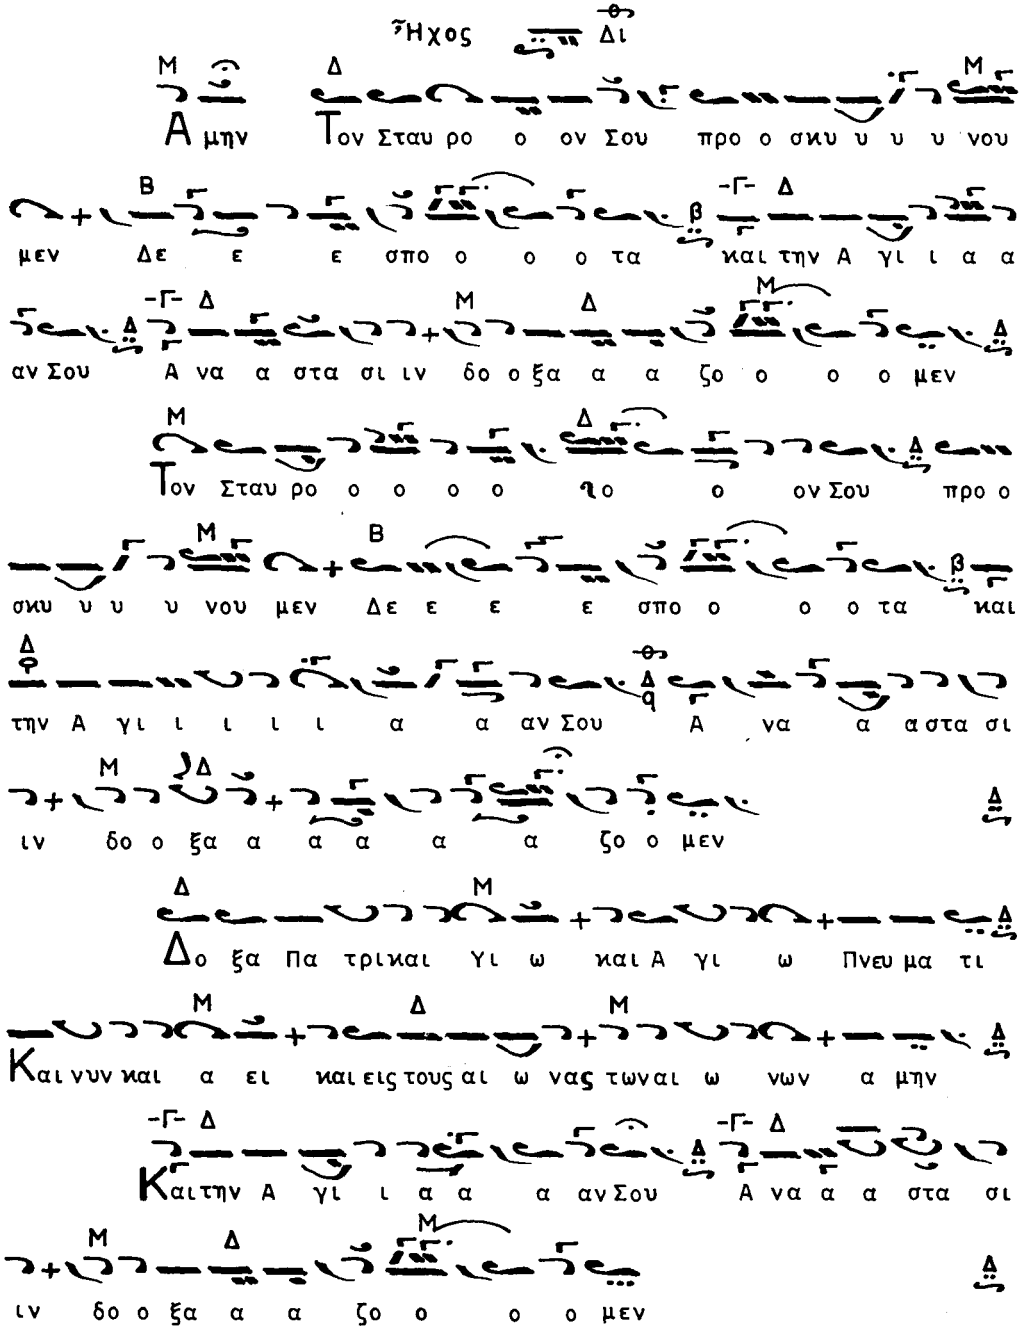 Ἦχος Δι
Α μην Τον Σταυ ρο ο ον Σου προ ο σκυ υ υ υ νου
μεν Δε ε ε σπο ο ο ο τα και την Α γι ι α α
αν Σου Α να α στα σι ιν δο ο ξα α α ζο ο ο ο μεν
Τον Σταυ ρο ο ο ο ο ο ο ον Σου προ ο
σκυ υ υ υ νου μεν Δε ε ε ε σπο ο ο ο τα και
την Α γι ι ι ι ι α α αν Σου Α να α α στα σι
ιν δο ο ξα α α α α α ζο ο μεν
Δο ξα Πα τρι και Υι ω και Α γι ω Πνευ μα τι
Και νυν και α ει και εις τους αι ω νας των αι ω νων α μην
Και την Α γι ι α α α αν Σου Α να α α στα σι
ιν δο ο ξα α α ζο ο ο ο μεν